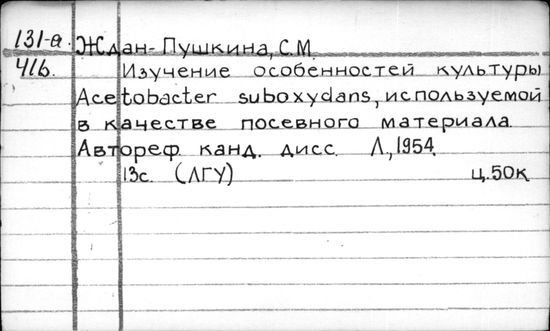 131-а. Ждан-Пушкина, С.М.
41б. Изучение особенностей культуры
Acetobacter suboxydans, используемой
в качестве посевного материала.
Автореф. канд. дисс. Л., 1954.
13с. (ЛГУ) ц.50к